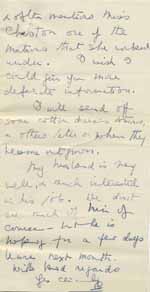 & often mentions Miss
Cheston one of the
Matrons that she worked
under. I wish I
could give you more
definite information.
I will send off
some cotton dresses
& others later when they
become outgrown.
My husband is very
well, & much interested
in his job. We don't
see much of him of
course – but he is
hoping for a few days
leave next month.
With kind regards